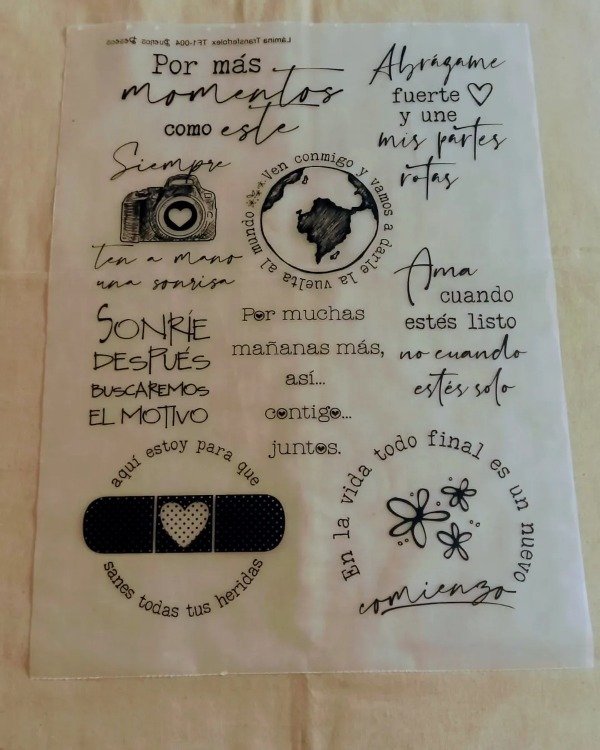 Lámina Transferfolex TF1-004 Sueños Deseos
Por más
momentos
como este
Abrázame
fuerte
y une
mis partes
rotas
Siempre
ten a mano
una sonrisa
Ven conmigo y vamos a darle la vuelta al mundo
Ama
cuando
estés listo
no cuando
estés solo
SONRÍE
DESPUÉS
BUSCAREMOS
EL MOTIVO
Por muchas
mañanas más,
así...
contigo...
juntos.
aquí estoy para que
sanes todas tus heridas
En la vida todo final es un nuevo
comienzo